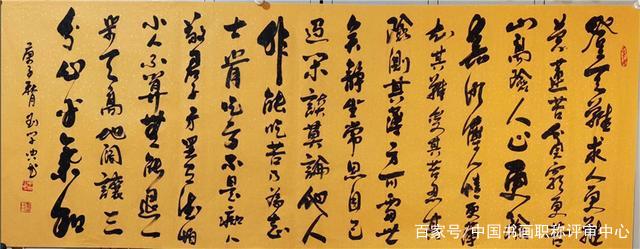 登天難求人更難
黄蓮苦貧窮更苦
山高險人心更險
春冰薄人情更薄
知其難受其苦
險測其薄方可處世
矣静坐常思自己
過閑談莫論他人
非能吃苦乃為志
士肯吃亏不是痴人
敬君子方显有德怕
小人不算無能退一
步天高地阔讓三
分心平氣和
庚子秋月
百家号/中国书画职称评审中心